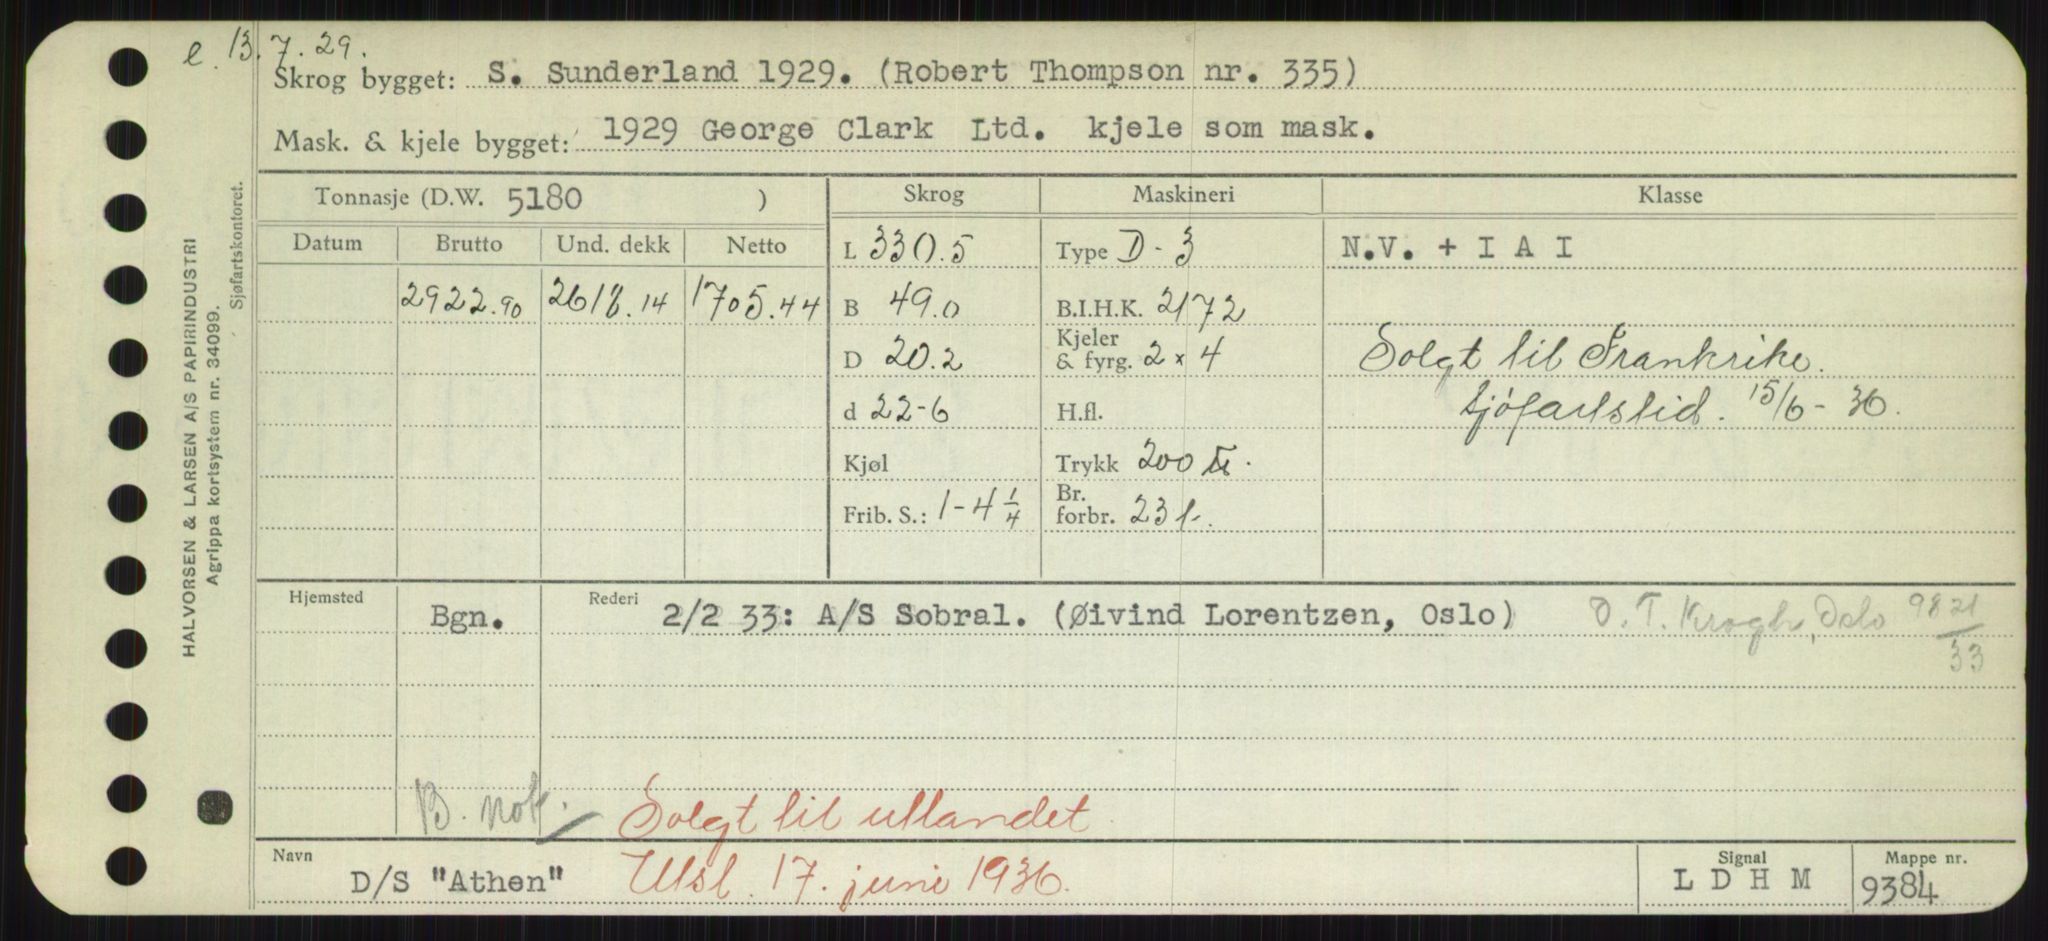 e. 13.7.29.
Skrog bygget: S. Sunderland 1929. (Robert Thompson nr. 335)
Mask. & kjele bygget: 1929 George Clark Ltd. kjele som mask.
Tonnasje (D.W. 5180 )
Datum Brutto Und. dekk Netto
2922.90 2618.14 1705.44
Skrog
L 330.5
B 49.0
D 20.2
d 22-6
Kjøl
Frib. S.: 1-4 1/4
Maskineri
Type D-3
B.I.H.K. 2172
Kjeler
& fyrg. 2 x 4
H.fl.
Trykk 200
Br.
forbr. 23 t.
Klasse
N.V. + I A I
Solgt til Frankrike.
Sjøfartstid. 15/6 - 36.
Hjemsted Rederi
Bgn. 2/2 33: A/S Sobral. (Øivind Lorentzen, Oslo) O. T. Krogh, Oslo 9821/33
B. not. Solgt til utlandet
Navn Signal Mappe nr.
D/S "Athen" Utsl. 17. juni 1936. L D H M 9384
HALVORSEN & LARSEN A/S PAPIRINDUSTRI
Agrippa kortsystem nr. 34099.
Sjøfartskontoret.